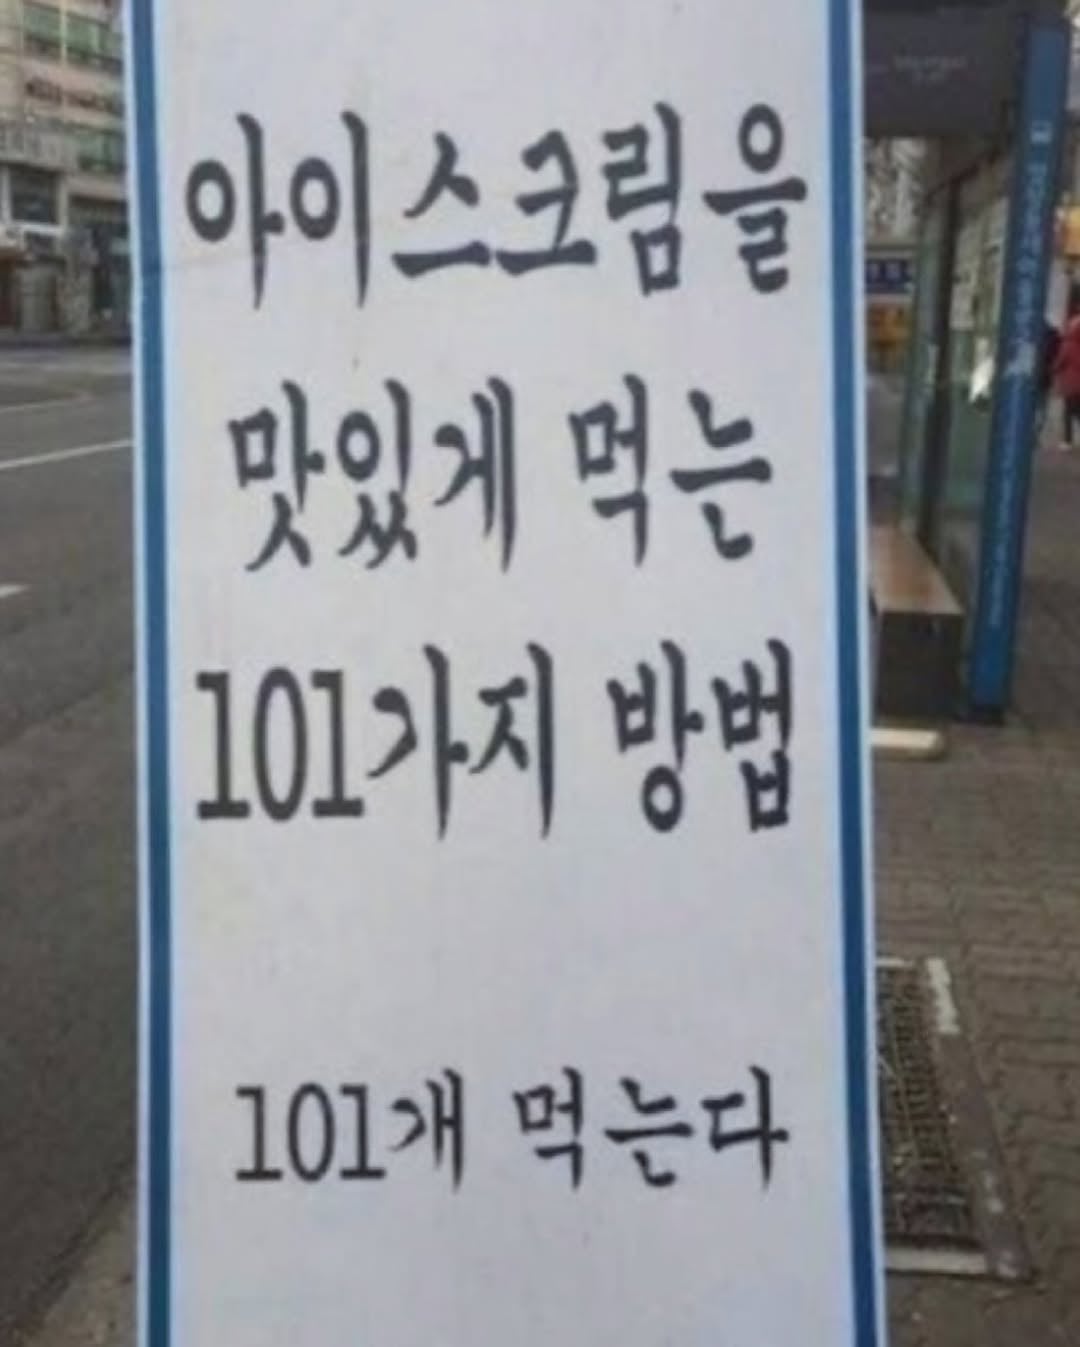 아이스크림을
맛있게 먹는
101가지 방법
101개 먹는다